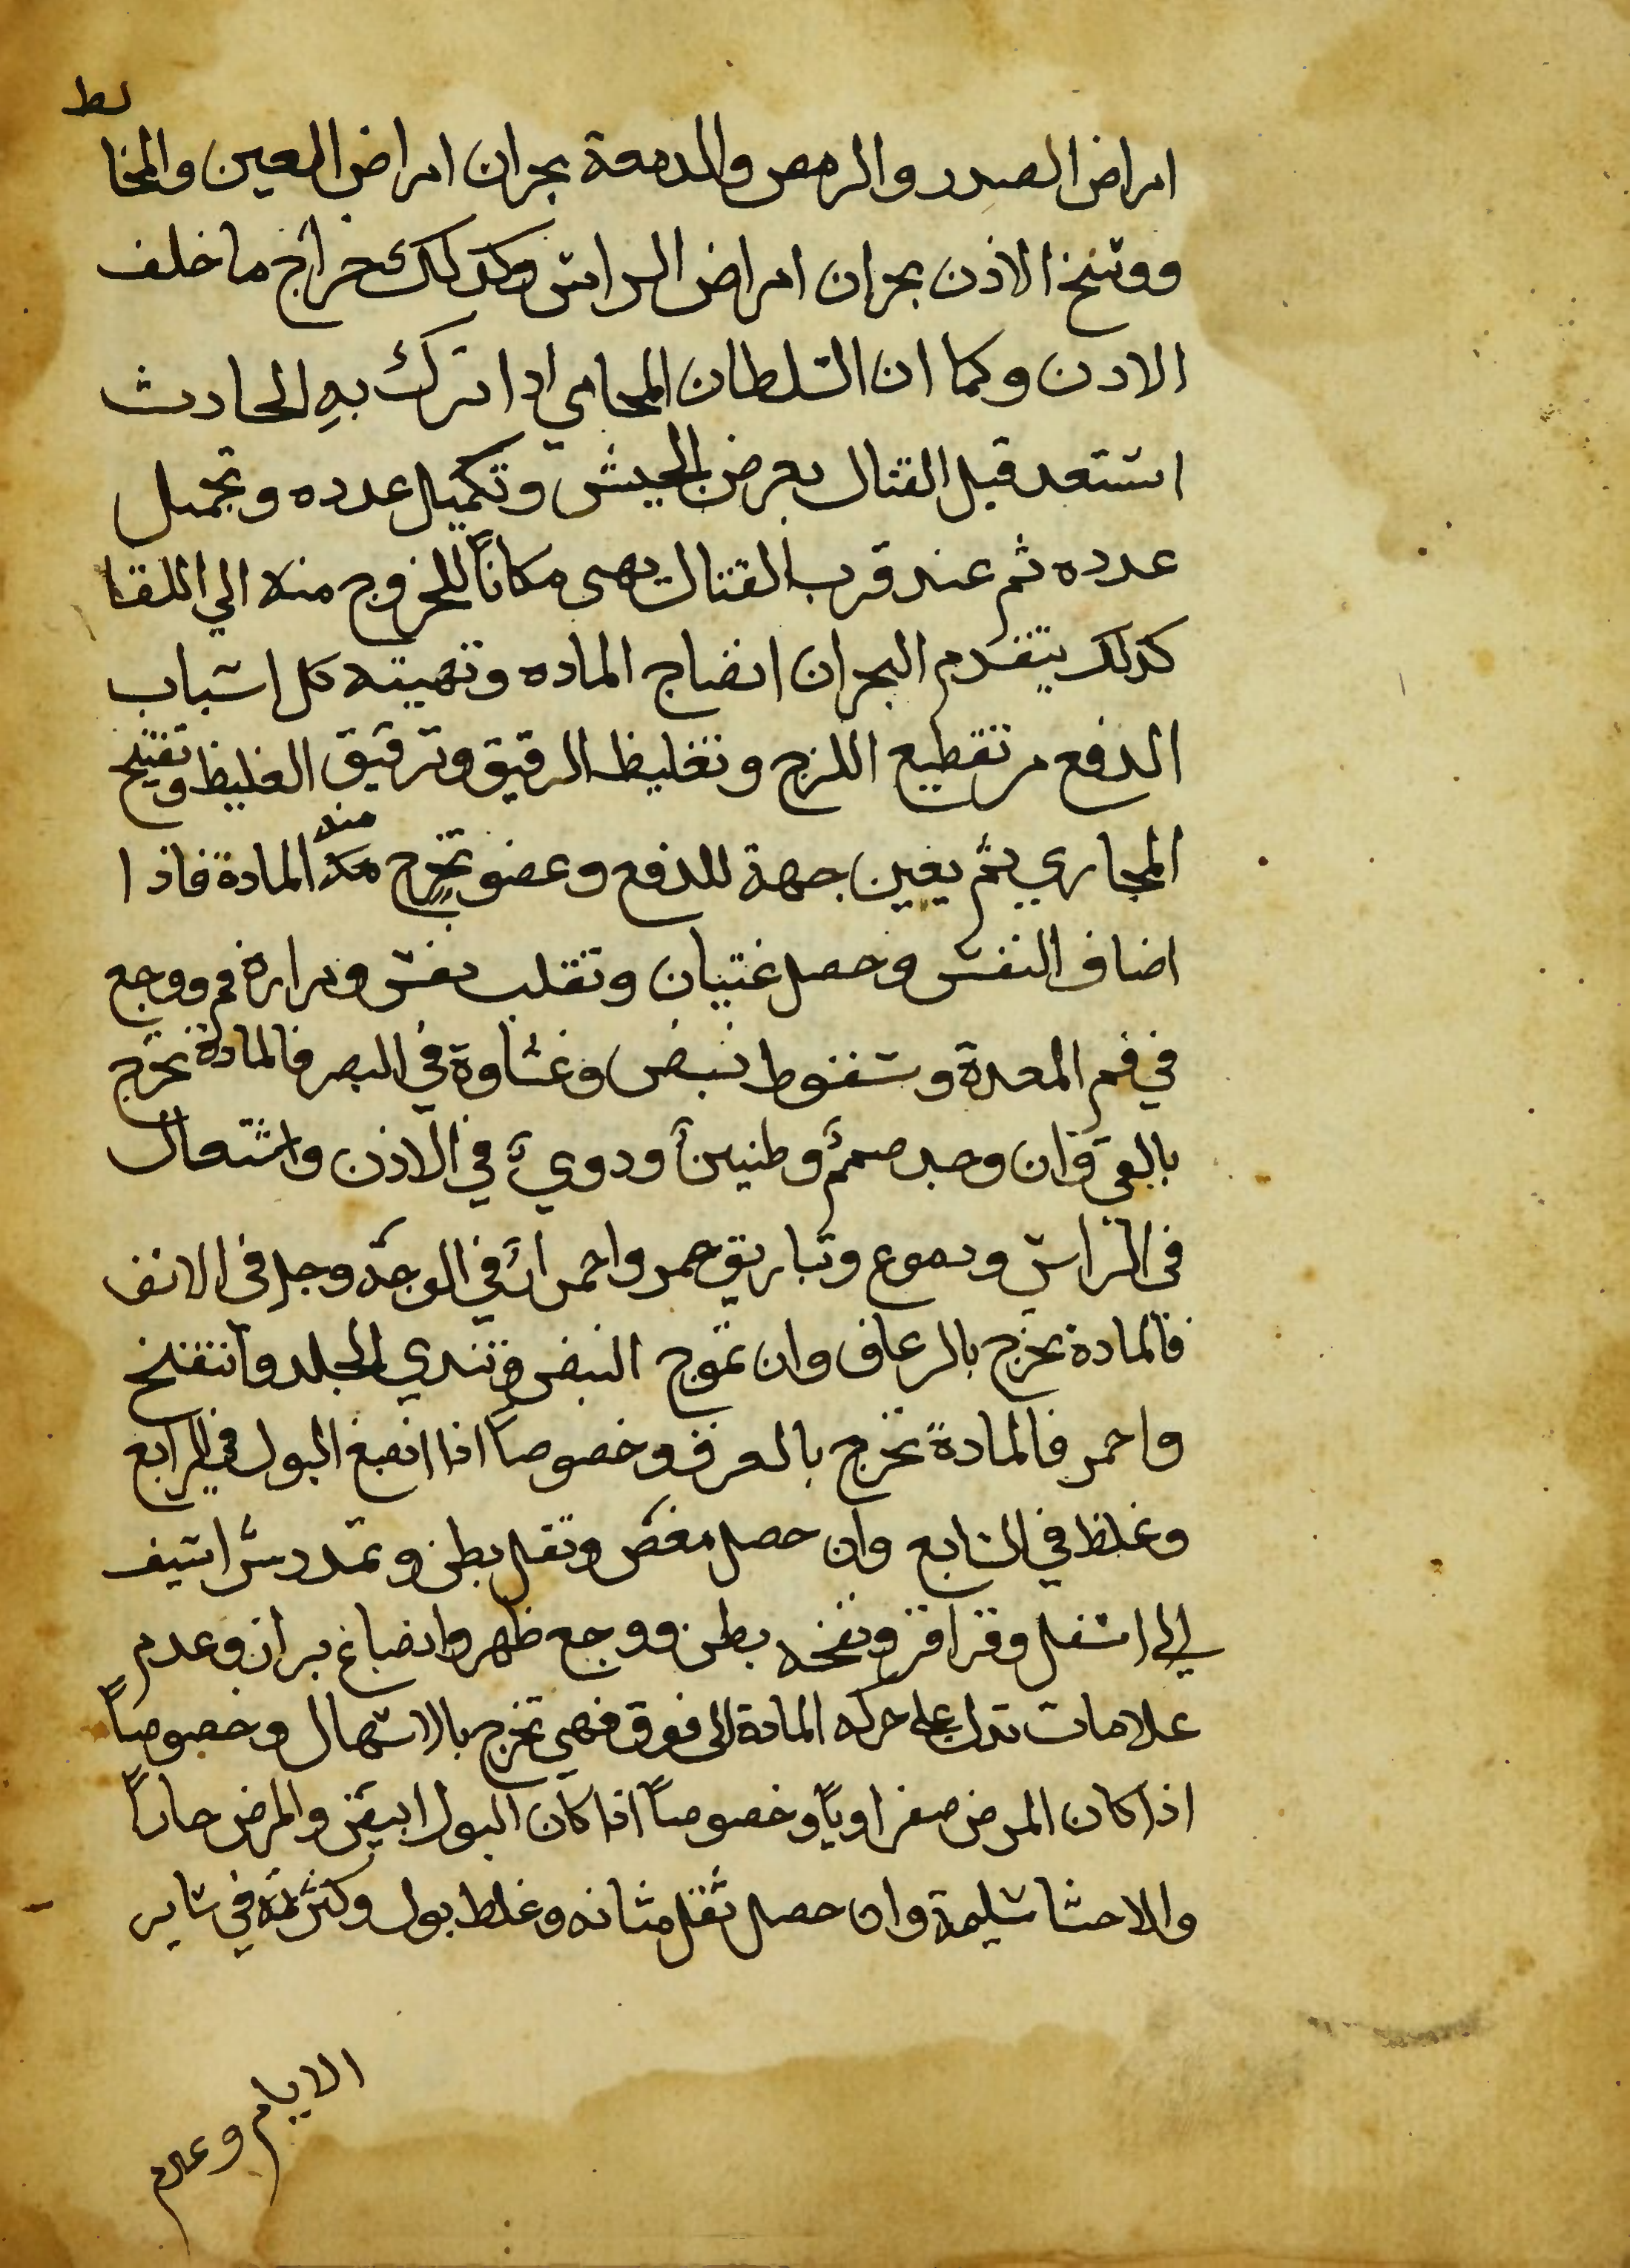 لط
امراض الصدر والرمص والدمعة بحران امراض العين والمخا
ووسخ الاذن بحران امراض الراس وكذلك خراج ما خلف
الادن وكما ان السلطان المحامي ادا ترك به الحادث
استعد قبل القتال بعرض الجيش وتكميل عدده وتجميل
عدده ثم عند قرب القتال يهىى مكاناً للخروج منه الي اللقا
كذلك يتقدم البحران انضاج الماده وتهيته كل اسباب
الدفع من تقطيع اللزج وتغليظ الرقيق وترقيق الغليظ وتفتيح
المجاري ثم يعين جهة للدفع وعضو تخرج منه المادة فاذا
اضاف النفس وحصل غتيان وتقلب نفس ومرارة فم ووجع
في فم المعدة وسقوط نبض وغشاوة في البصر فالمادة تخرج
بالقي وان وجد صمم وطنين ودوي في الاذن واشتعال
في الراس ودموع وتباريق حمر واحمرار في الوجه وحك في الانف
فالمادة تخرج بالرعاف وان تموج النبض وتندي الجلد وانتفخ
واحمر فالمادة تخرج بالعرق وخصوصاً اذا انصبغ البول في الرابع
وغلظ في السابع وان حصل مغص وثقل بطن وتمدد شراسيف
الي اسفل وقراقر ونفخه بطن ووجع ظهر وانصباغ براز وعدم
علامات تدل علي حركه المادة الى فوق فهي تخرج بالاسهال وخصوصاً
اذا كان المرض صفراوياً وخصوصاً اذا كان البول ابيض والمرض حاداً
والاحشا سليمة وان حصل ثقل مثانه وغلظ بول وكثرته في ساير
الايام وعدم